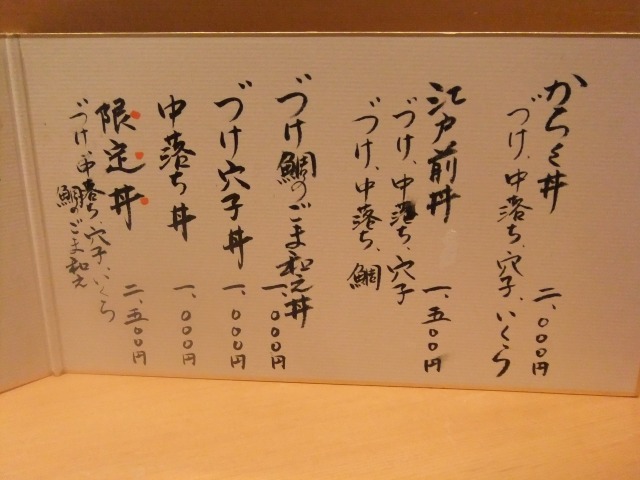 からく丼 二、〇〇〇円
づけ、中落ち、穴子、いくら
江戸前丼 一、五〇〇円
づけ、中落ち、穴子
づけ、中落ち、鯛
づけ鯛のごま和え丼 一、〇〇〇円
づけ穴子丼 一、〇〇〇円
中落ち丼 一、〇〇〇円
限定丼 二、五〇〇円
づけ、中落ち、穴子、いくら
鯛のごま和え